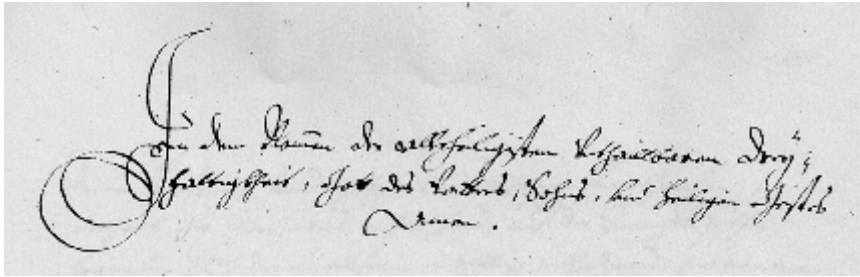 In dem Namen der allerheiligisten Unzertheilbaren Drey¬
faltigkheit, Gott des Vatters, Sohns, und heiligen Geistes
Amen.